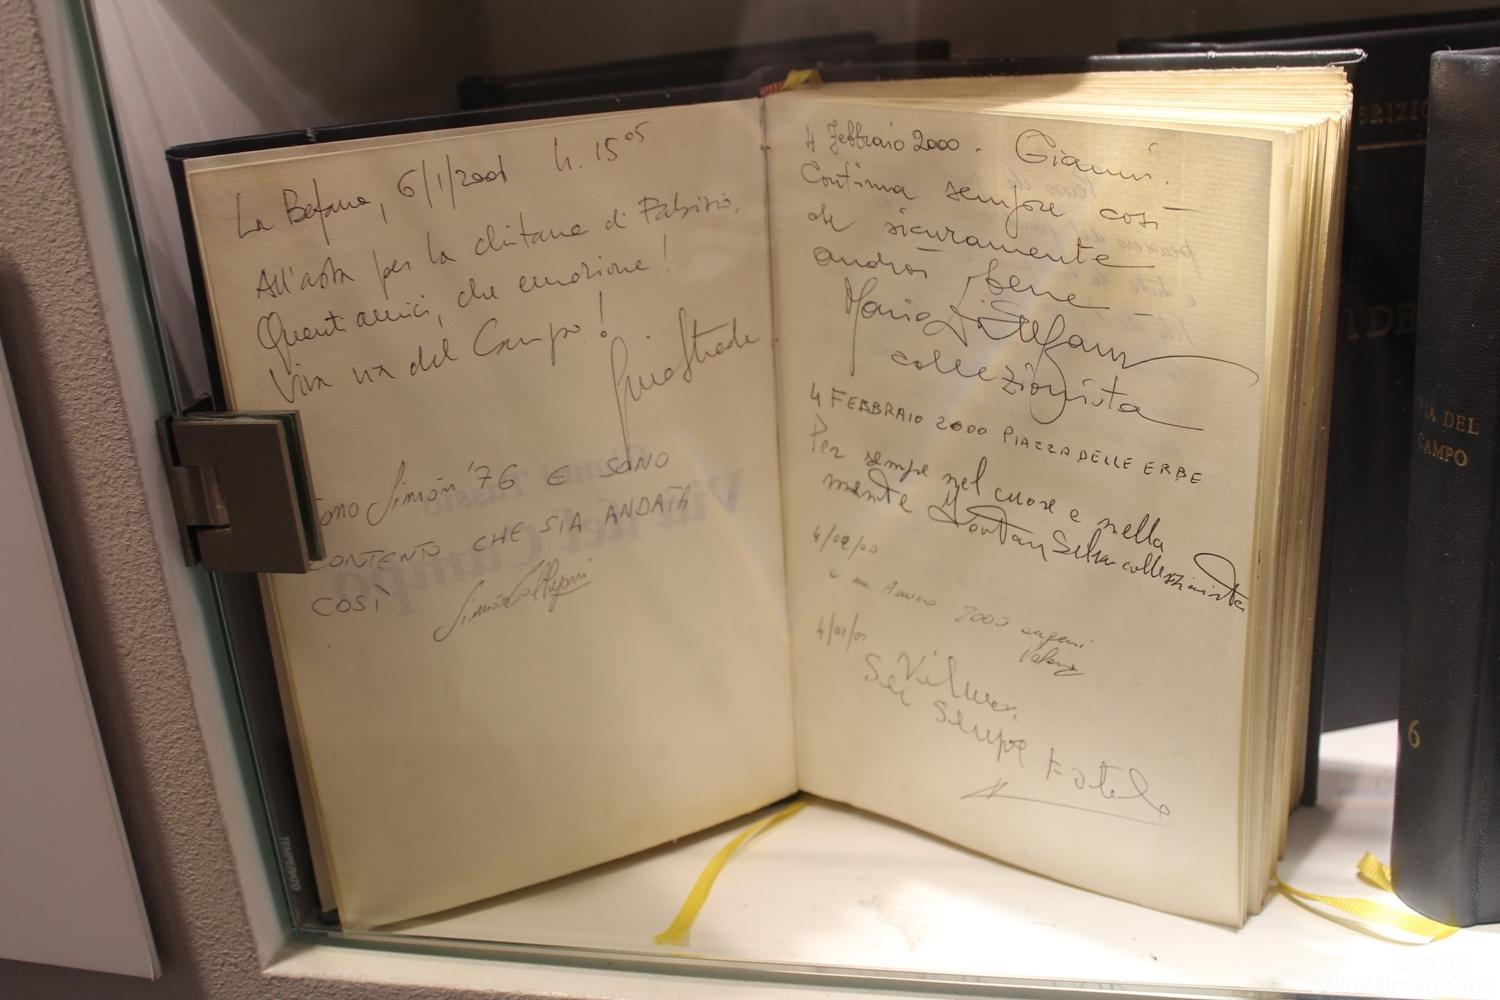 La Befana, 6/1/2001 h. 15 05
All'asta per la chitarra di Fabrizio.
Quanti amici, che emozione!
Viva via del Campo!
Sono Simón '76 E SONO
CONTENTO CHE SIA ANDATA
COSÌ
Gianni Tassio
Via del Campo
4 Febbraio 2000. Gianni.
Continua sempre così
che sicuramente
andrai bene
Mario
collezionista
4 FEBBRAIO 2000 PIAZZA DELLE ERBE
Per sempre nel cuore e nella
mente collezionista
4/02/00
2000
4/02/00
Sei Sempre
TEMPERATO
BRIZIO
ADE
VIA DEL
CAMPO
6
©2012